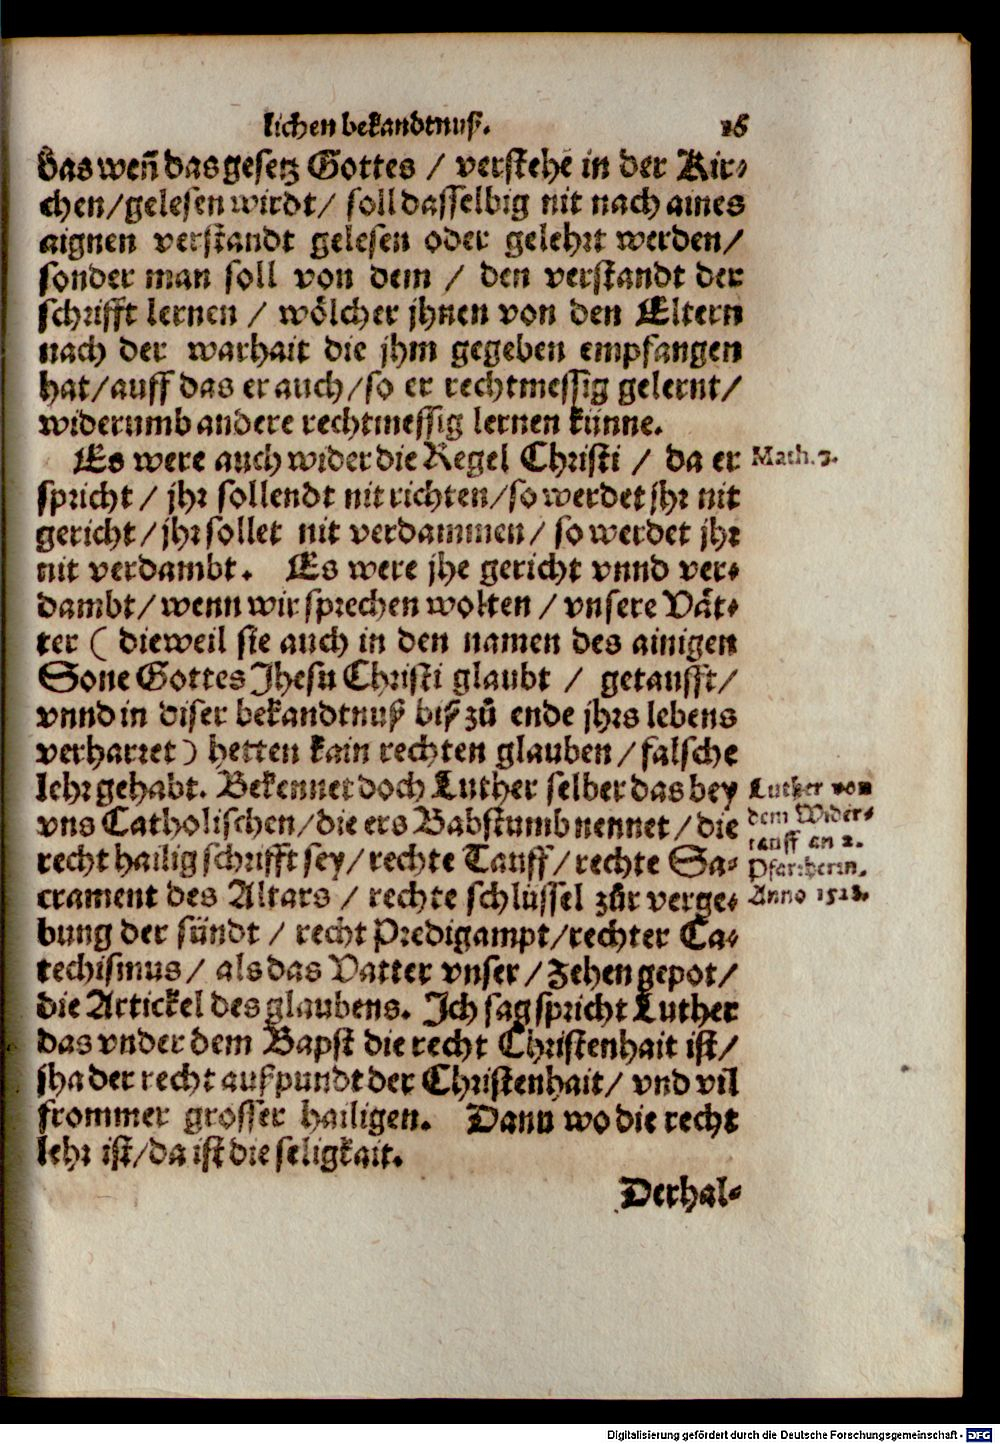 lichen bekandtnuß. 16
das weñ das gesetz Gottes / verstehe in der Kir⸗
chen/gelesen wirdt/ soll dasselbig nit nach aines
aignen verstandt gelesen oder gelehrt werden/
sonder man soll von dem / den verstandt der
schrifft lernen / wölcher jhnen von den Eltern
nach der warhait die jhm gegeben empfangen
hat/auff das er auch/so er rechtmessig gelernt/
widerumb andere rechtmessig lernen künne.
Es were auch wider die Regel Christi / da er
Math. 7.
spricht / jhr sollendt nit richten/so werdet jhr nit
gericht/jhr sollet nit verdammen/ so werdet jhr
nit verdambt. Es were jhe gericht vnnd ver⸗
dambt/wenn wir sprechen wolten / vnsere Vät⸗
ter ( dieweil sie auch in den namen des ainigen
Sone Gottes Jhesu Christi glaubt / getaufft/
vnnd in diser bekandtnuß biß zů ende jhrs lebens
verharret ) hetten kain rechten glauben /falsche
lehr gehabt. Bekennet doch Luther selber das bey
vns Catholischen/die ers Babstumb nennet/die
recht hailig schrifft sey/rechte Tauff/rechte Sa⸗
crament des Altars / rechte schlüssel zůr verge⸗
bung der sündt / recht Predigampt/rechter Ca⸗
techismus/ als das Vatter vnser /Zehen gepot/
die Artickel des glaubens. Ich sag spricht Luther
das vnder dem Bapst die recht Christenhait ist/
jha der recht außpundt der Christenhait/ vnd vil
frommer grosser hailigen. Dann wo die recht
lehr ist/da ist die seligkait.
Luther von
dem Wider⸗
tauff an 2.
Pfarrherin.
Anno 1528.
Derhal⸗
Digitalisierung gefördert durch die Deutsche Forschungsgemeinschaft - DFG